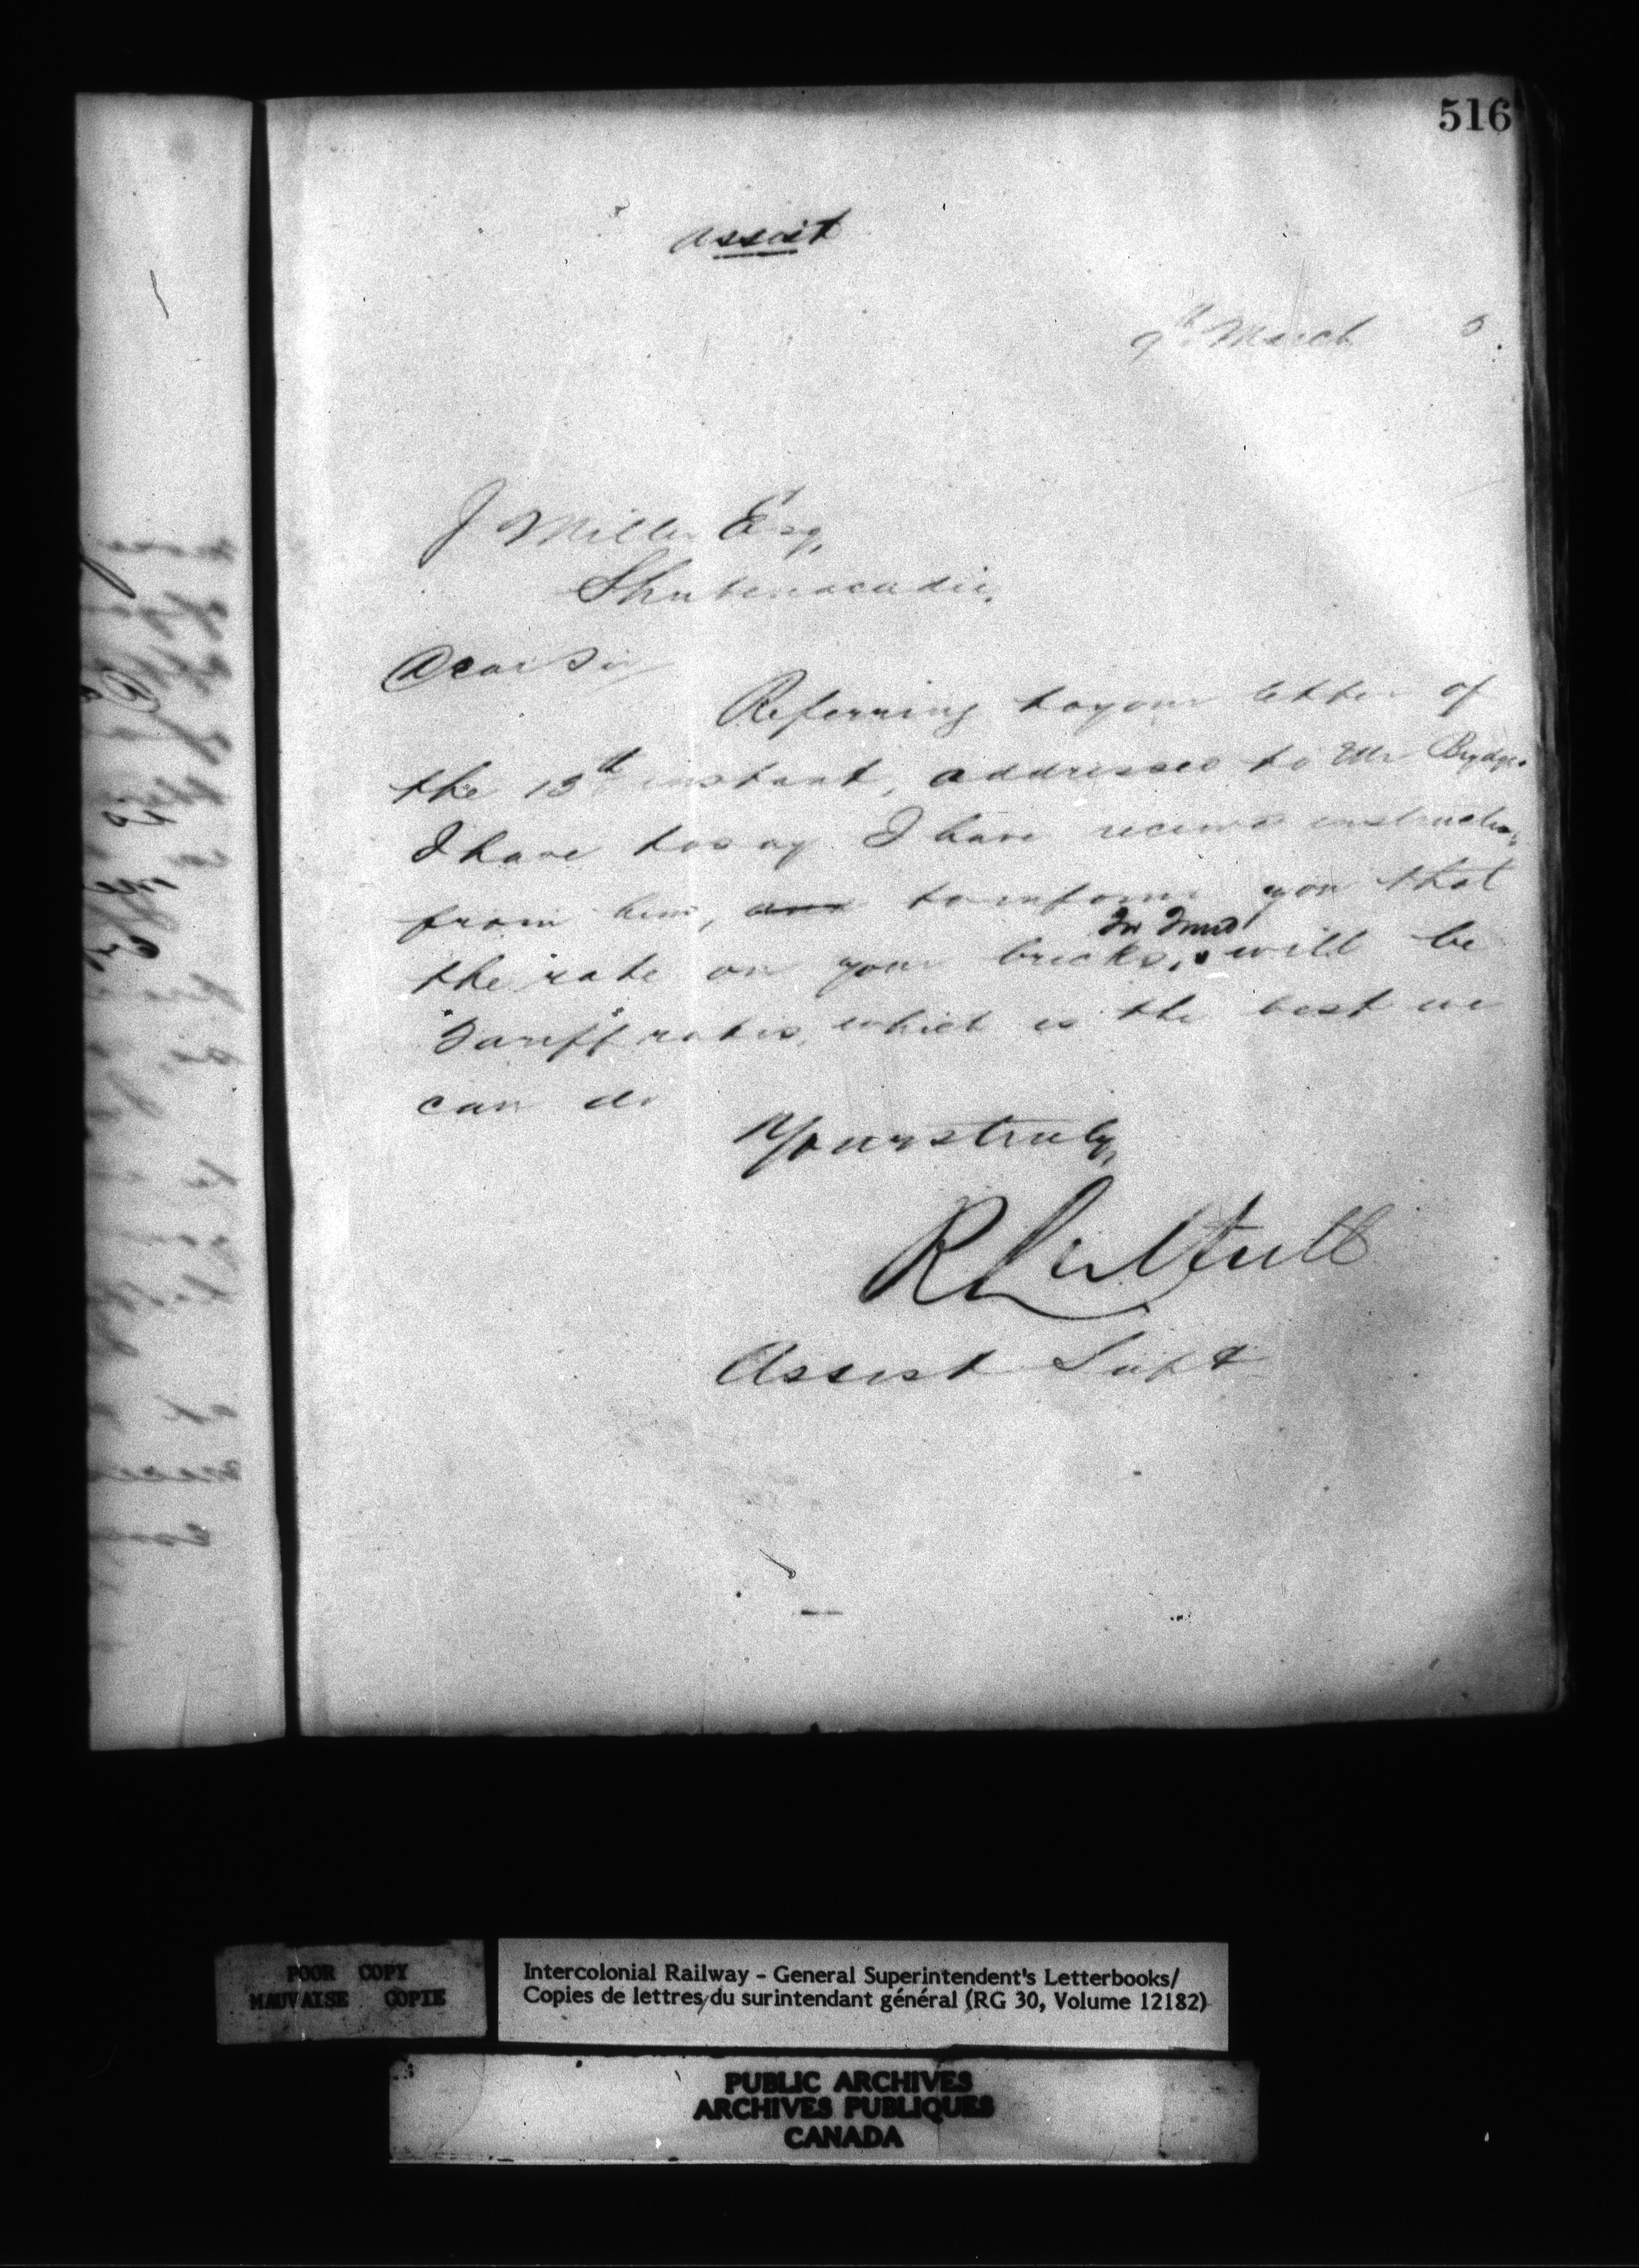 516
Assist
9th March 5.
J Miller Esq,
Shubenacadie,
Dear Sir
Referring to your letter of
the 13th instant, addressed to Mr Brydges
I have to say I have received instructions
from him, to inform you that
the rate on your bricks, will be
"Tariff" rates, which is the best we
can do
Yours truly,
R
Assist Supt
POOR COPY
MAUVAISE COPIE
Intercolonial Railway - General Superintendent's Letterbooks/
Copies de lettres du surintendant général (RG 30, Volume 12182)
PUBLIC ARCHIVES
ARCHIVES PUBLIQUES
CANADA